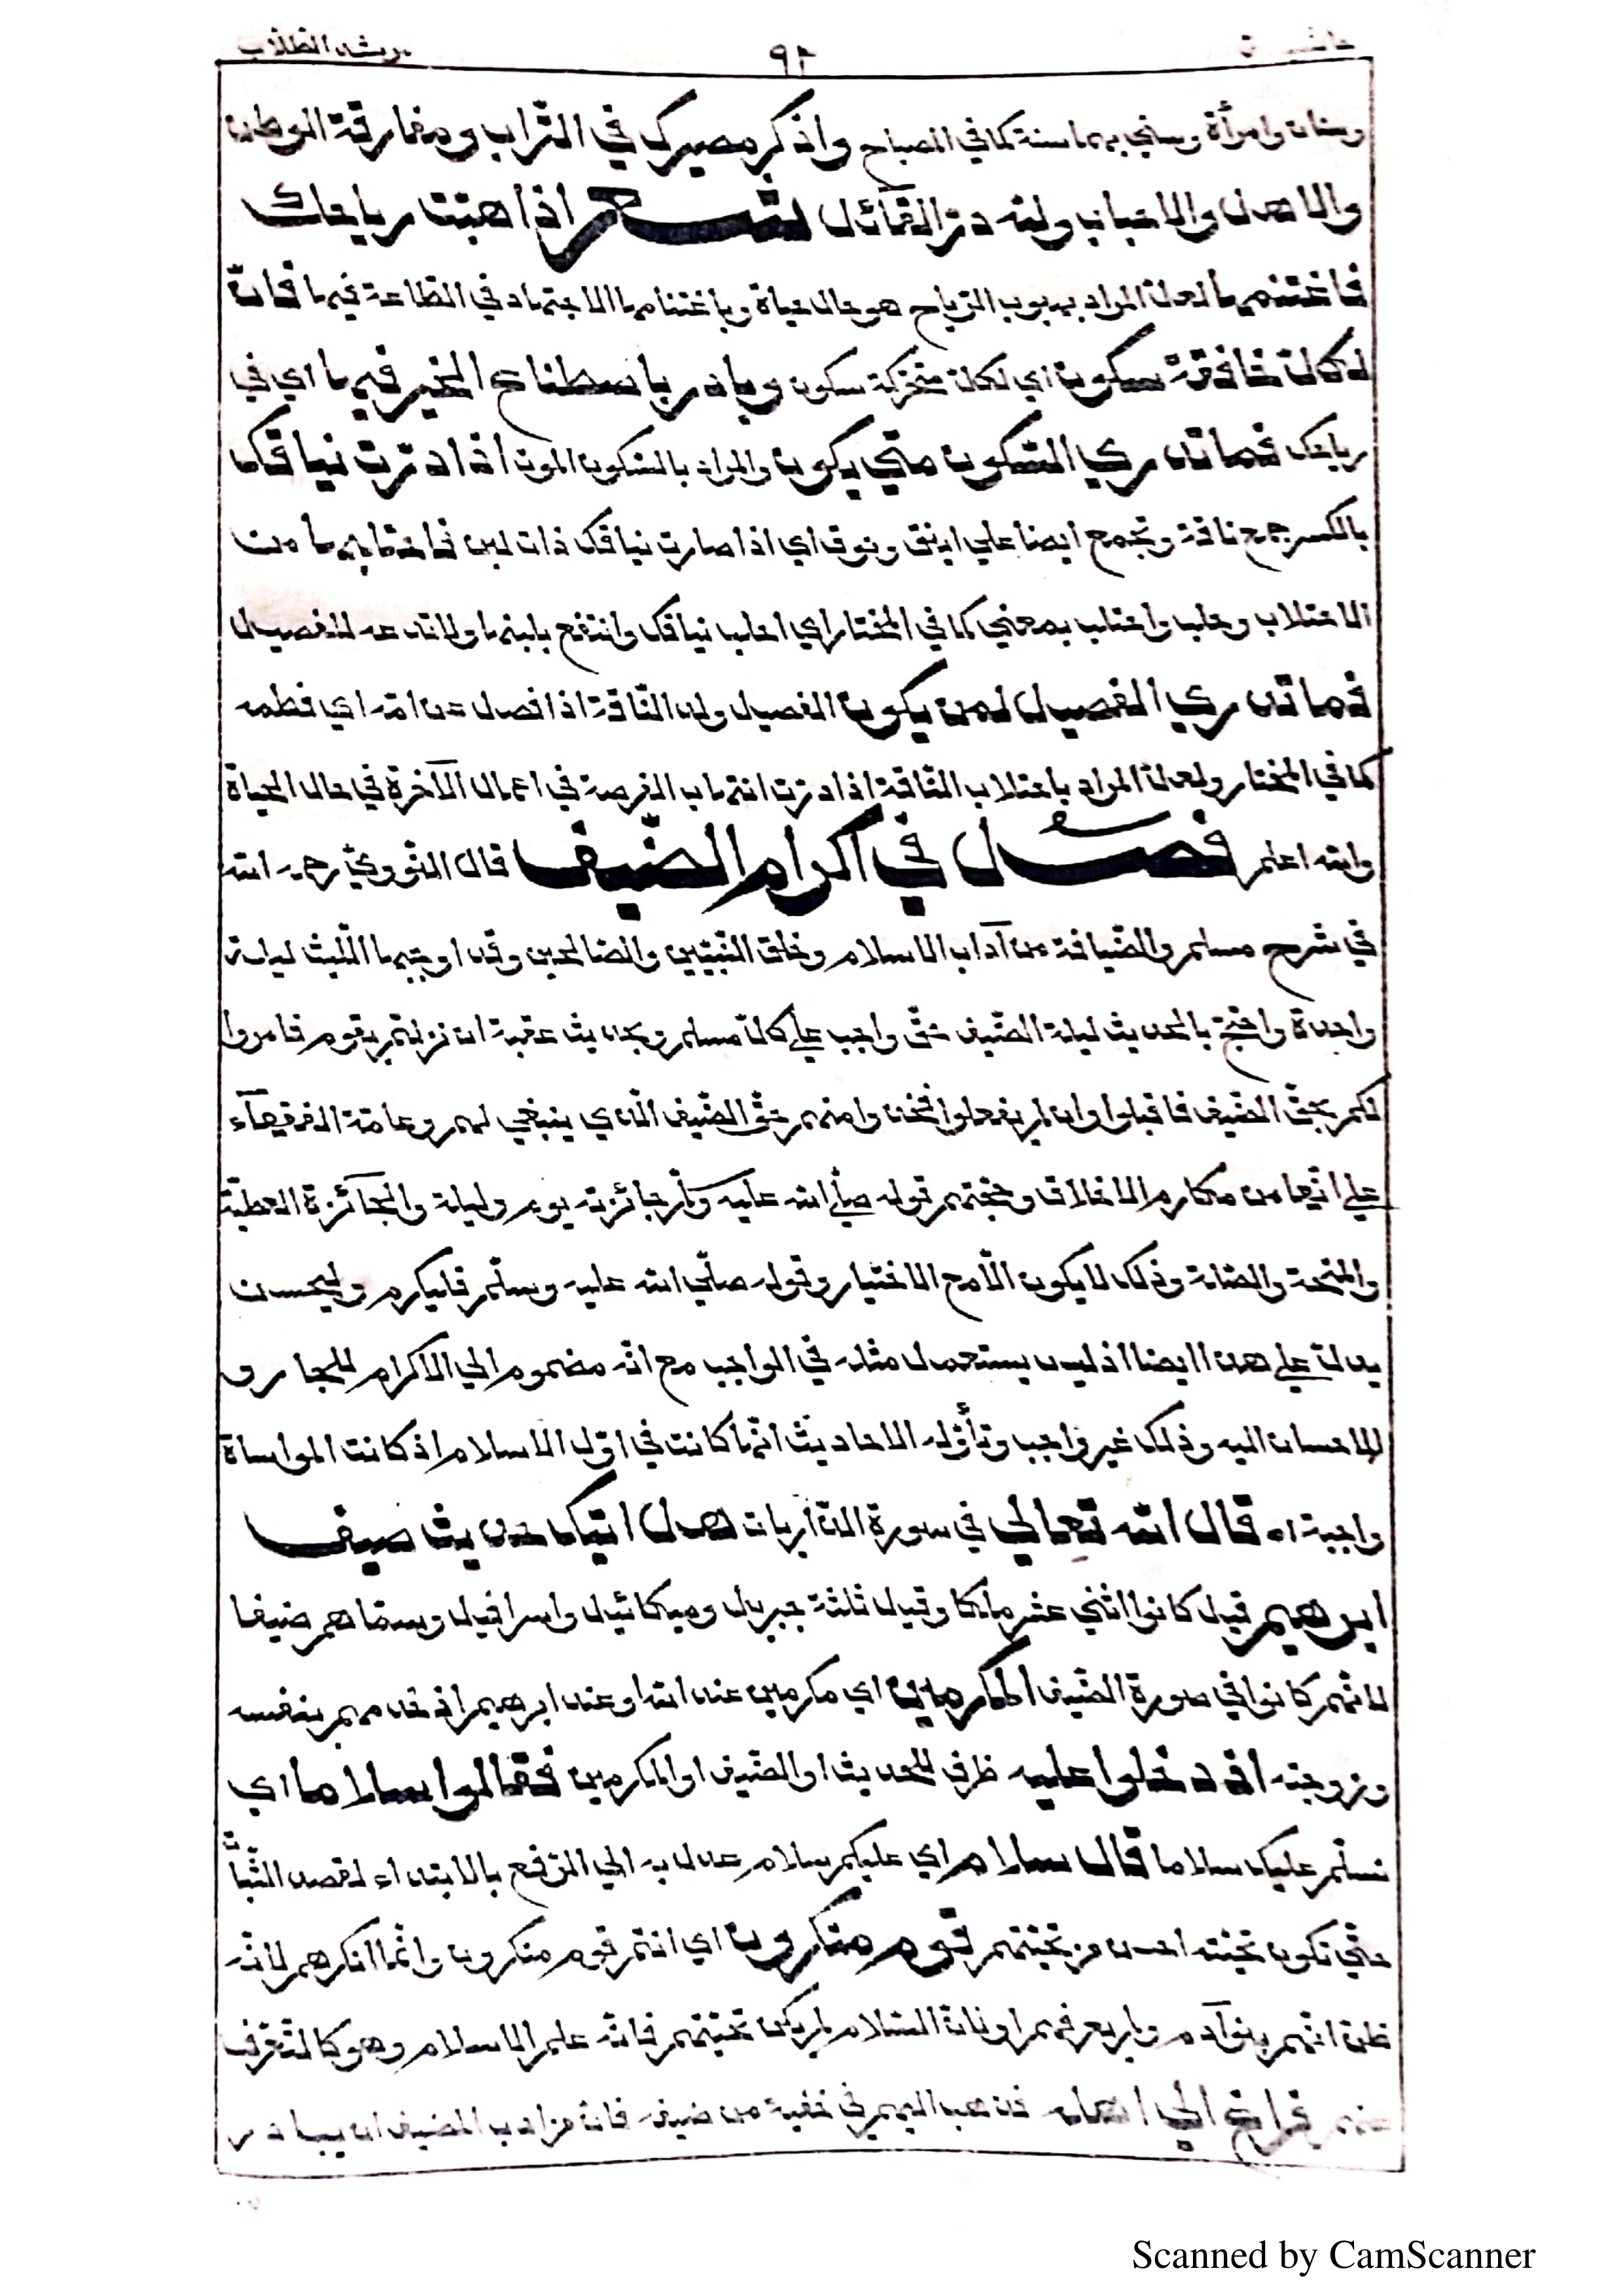 مرشد الطلاب ٩٢
وسنان وامرأة وسنى بهما سنة كما في المصباح واذكر مصيرك في التراب ومفارقة الوطن
والاهل والاحباب ولله در القائل شعر اذا هبت رياحك
فاغتنمها لعل المراد بهبوب الرياح هو حال حياة وباغتنامها الاجتهاد في الطاعة فيها فان
لكل خافقة سكون اي لكل متحركة سكون وبادر باصطناع الخير فيها اي في
رياحك فما تدري السكون متي يكون والمراد بالسكون الموت اذا درت نياقك
بالكسر جمع ناقة وتجمع ايضا علي اينق ونوق اي اذا صارت نياقك ذات لبن فاحتلبها من
الاحتلاب وحلب واحتلب بمعني كما في المختار اي احلب نياقك وانتفع بلبنها ولا تدعه للفصيل
فما تدري الفصيل لمن يكون الفصيل ولد الناقة اذا فصل عن امه اي فطمه
كما في المختار ولعل المراد باحتلاب الناقة اذا درت انتهاب الفرصة في اعمال الآخرة في حال الحياة
والله اعلم فصل في اكرام الضيف قال النووي رحمه الله
في شرح مسلم والضيافة من آداب الاسلام وخلق النبيين والصالحين وقد اوجبها الليث ليلة
واحدة واحتج بالحديث ليلة الضيف حق واجب علي كل مسلم وبحديث عقبة ان نزلتم بقوم فامروا
لكم بحق الضيف فاقبلوا وان لم يفعلوا فخذوا منهم حق الضيف الذي ينبغي لهم وعامة الفقهآء
علي انها من مكارم الاخلاق وحجتهم قوله صلي الله عليه وسلم جائزته يوم وليلة والجآئزة العطية
والمنحة والصلة وذلك لا يكون الا مع الاختيار وقوله صلي الله عليه وسلم فليكرم وليحسن
يدل علي هذا ايضا اذ ليس يستعمل مثله في الواجب مع انه مضموم الي الاكرام للجار و
الاحسان اليه وذلك غير واجب وتأوله الاحاديث انها كانت في اول الاسلام اذ كانت المواساة
واجبة اه قال الله تعالي في سورة الذاريات هل اتيك حديث ضيف
ابرهيم قيل كانوا اثني عشر ملكا وقيل ثلثة جبريل وميكائيل واسرافيل وسماهم ضيفا
لانهم كانوا في صورة الضيف المكرمين اي مكرمين عند الله او عند ابرهيم اذ خدمهم بنفسه
وزوجته اذ دخلوا عليه ظرف للحديث او الضيف او المكرمين فقالوا سلاما اي
نسلم عليك سلاما قال سلام اي عليكم سلام عدل به الي الرفع بالابتداء لقصد الثبات
حتي تكون تحيته احسن من تحيتهم قوم منكرون اي انتم قوم منكرون وانما انكرهم لانه
ظن انهم بنو آدم ولم يعرفهم او لان السلام لم يكن تحيتهم فانه علم الاسلام وهو كالتعرف
عنهم فراغ الي اهله فذهب اليهم في خفية من ضيفه فان من ادب المضيف ان يبادر
Scanned by CamScanner